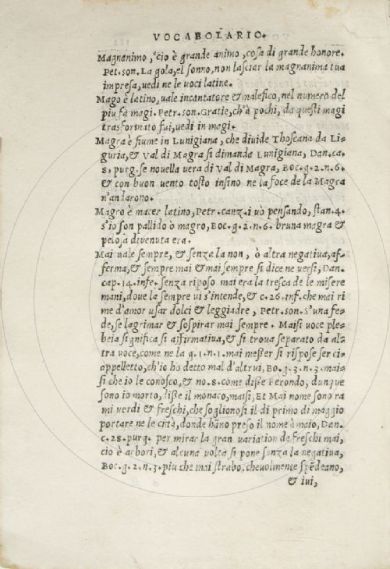 VOCABOLARIO.
Magnanimo, cio è grande animo, cosa di grande honore.
Pet. son. La gola, el sonno, non lasciar la magnanima tua
impresa, vedi ne le voci latine.
Mago è latino, vale incantatore & malefico, nel numero del
piu fà magi. Petr. son. Gratie, ch'à pochi, da questi magi
trasformato fui, vedi in magi.
Magra è fiume in Lunigiana, che divide Thoscana da Li-
guria, & Val di Magra si dimanda Lunigiana, Dan. ca.
8. purg. se novella vera di Val di Magra, Boc. g. 2. n. 6.
& con buon vento tosto infino ne la foce de la Magra
n'andarono.
Magro è macer latino, Petr. canz. i vò pensando, stan. 4.
s'io son pallido ò magro, Boc. g. 2. n. 6. bruna magra &
pelosa divenuta era.
Mai vale sempre, & senza la non, ò altra negativa, af-
ferma, & sempre mai & mai sempre si dice ne versi, Dan.
cap. 14. infe. senza riposo mai era la tresca de le misere
mani, dove la sempre vi s'intende, & c. 26. inf. che mai ri
me d'amor usar dolci & leggiadre, Petr. son. s'una fe-
de, se lagrimar & sospirar mai sempre. Maisi voce ple-
beia significa si affirmativa, & si trova separato da al-
tra voce, come ne la g. 1. n. 1. mai messer si rispose ser ci-
appelletto, ch'io ho detto mal d'altrui, Bo. g. 3. n. 3. mai
si che io le conosco, & no. 8. come disse Ferondo, dunque
sono io morto, disse il monaco, mai si, Et Mai nome sono ra
mi verdi & freschi, che sogliono si il di primo di maggio
portare ne le citá, donde háno preso il nome ò maio, Dan.
c. 28. purg. per mirar la gran variation de freschi mai,
cio è arbori, & alcuna volta si pone senza la negativa,
Boc. g. 2. n. 3. piu che mai strabochevolmente spēdeano,
& ivi,